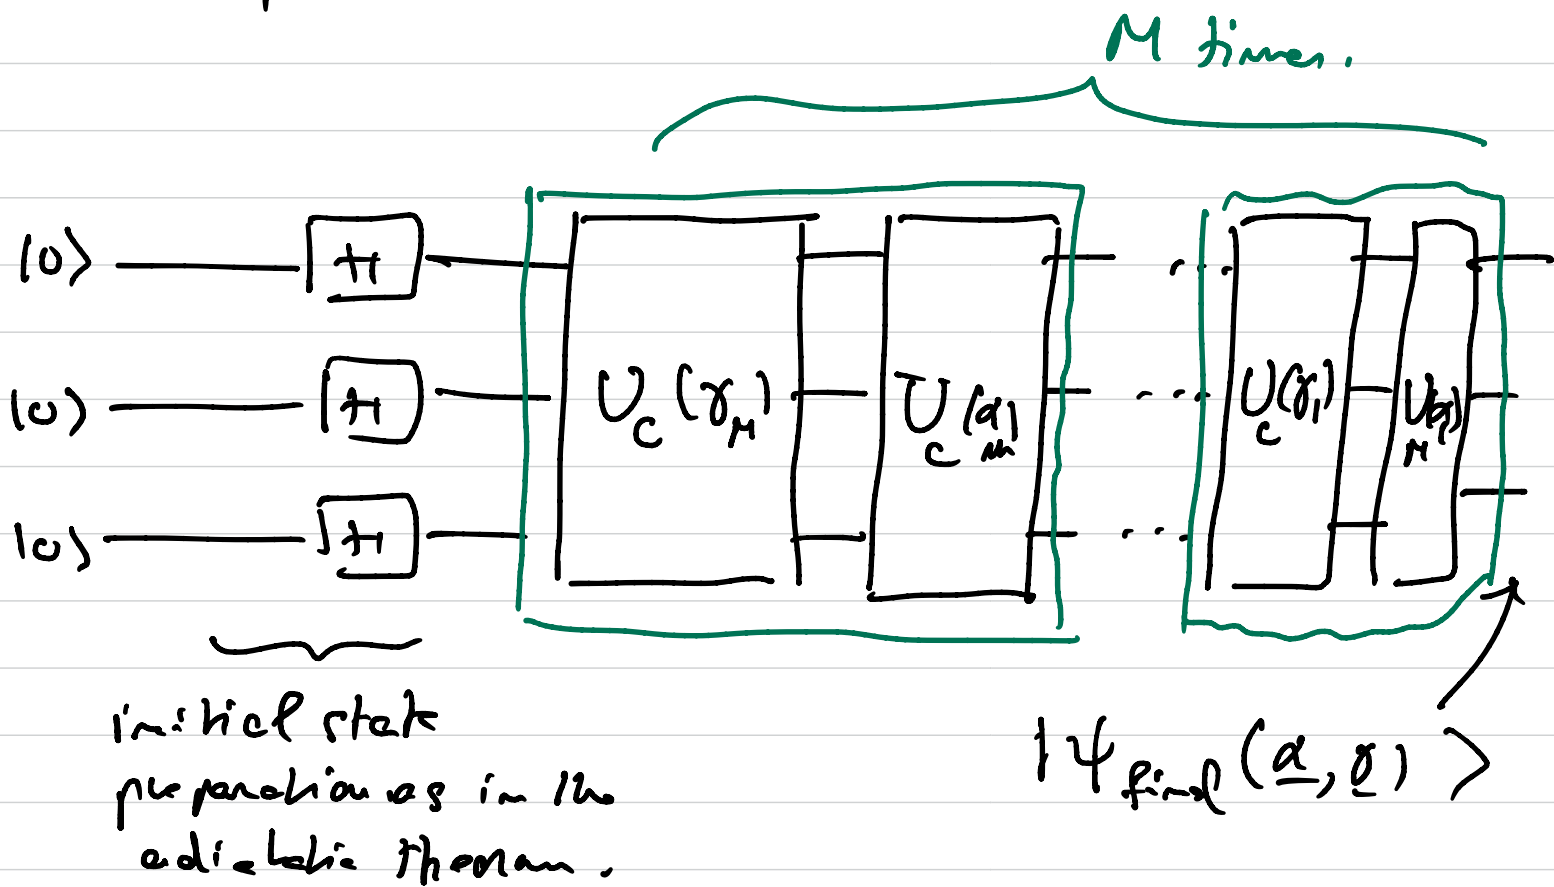 M times.
|0⟩ H
U_C(γ_M) U_C(α_M) U_C(γ_1) U_M(α_1)
|0⟩ H
|0⟩ H
initial state
preparation as in the
adiabatic theorem.
|ψ_final(α, γ)⟩